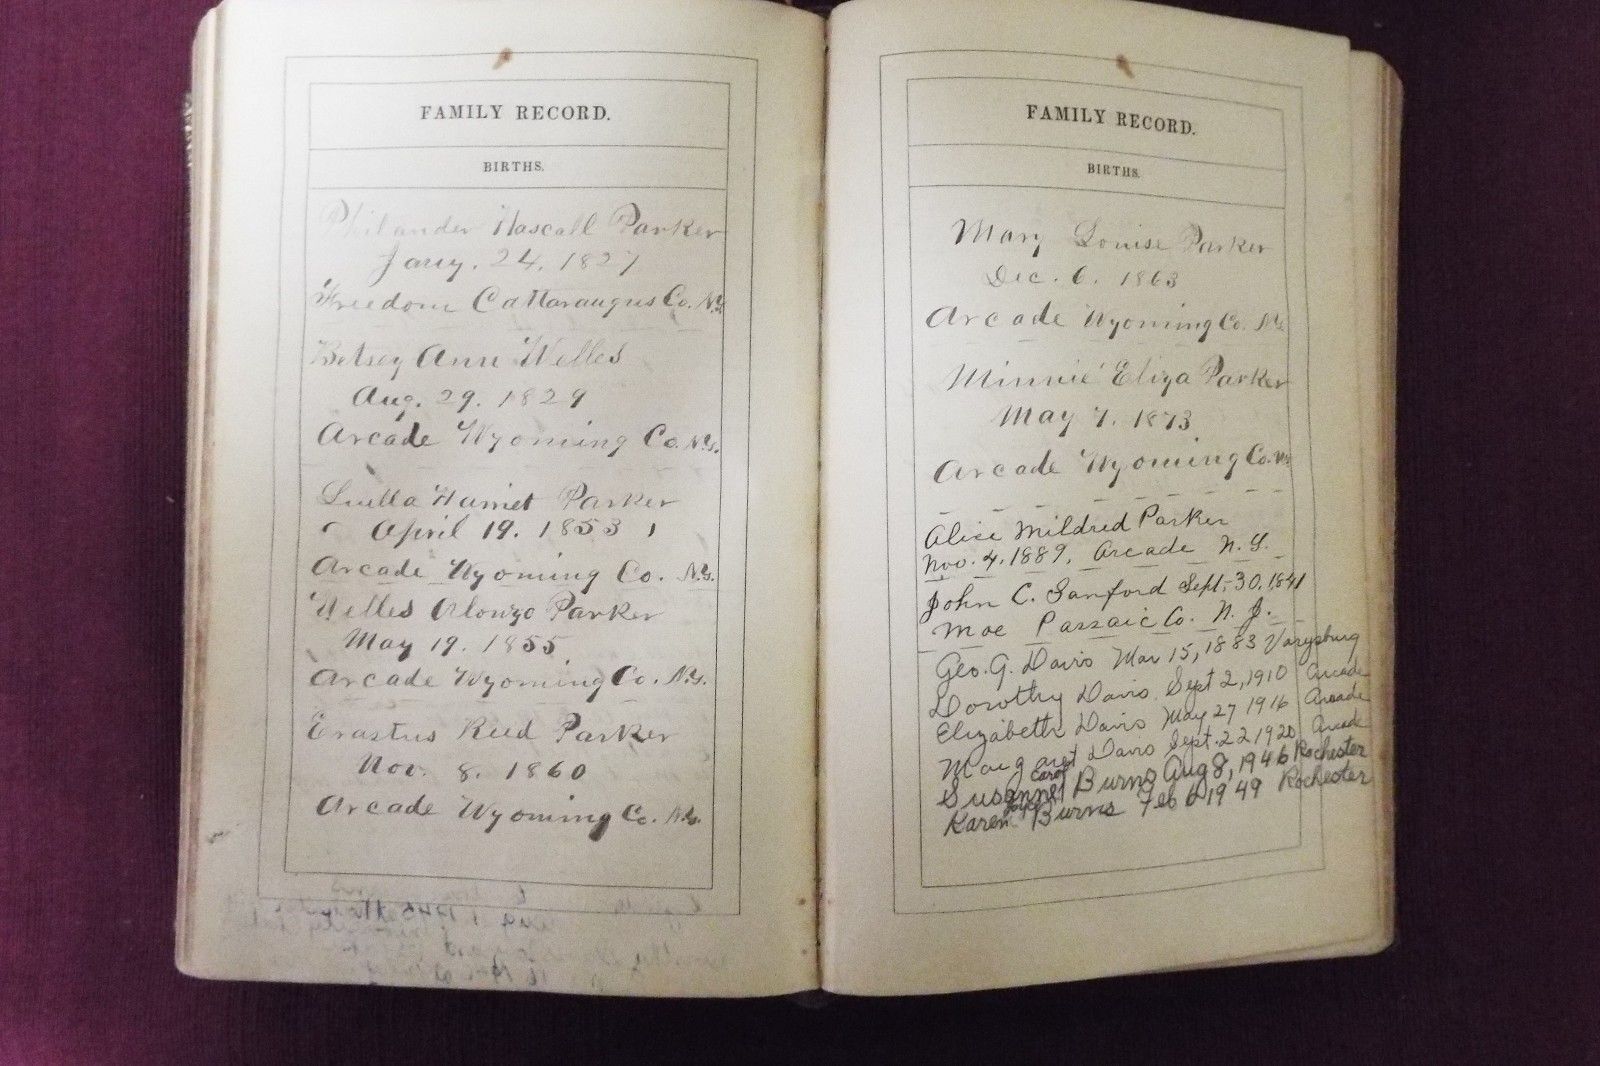 FAMILY RECORD.
BIRTHS.
Philander Hascall Parker
Jany. 24. 1827
Freedom Cattaraugus Co. N.Y.
Betsey Ann Welles
Aug. 29. 1829
Arcade Wyoming Co. N.Y.
Luella Harriet Parker
April 19. 1853
Arcade Wyoming Co. N.Y.
Welles Alonzo Parker
May 19. 1855
Arcade Wyoming Co. N.Y.
Erastus Reed Parker
Nov. 8. 1860
Arcade Wyoming Co. N.Y.
FAMILY RECORD.
BIRTHS.
Mary Louise Parker
Dec. 6. 1863
Arcade Wyoming Co. N.Y.
Minnie Eliza Parker
May 7. 1873
Arcade Wyoming Co. N.Y.
Alice Mildred Parker
Nov. 4. 1889, Arcade N.Y.
John C. Sanford Sept. 30, 1841
Moe Passaic Co. N. J.
Geo. G. Davis Mar 15, 1883 Varysburg
Dorothy Davis Sept 2, 1910 Arcade
Elizabeth Davis May 27 1916 Arcade
Margaret Davis Sept. 22 1920 Arcade
Susanne Carol Burns Aug 8, 1946 Rochester
Karen Burns Feb 6 1949 Rochester